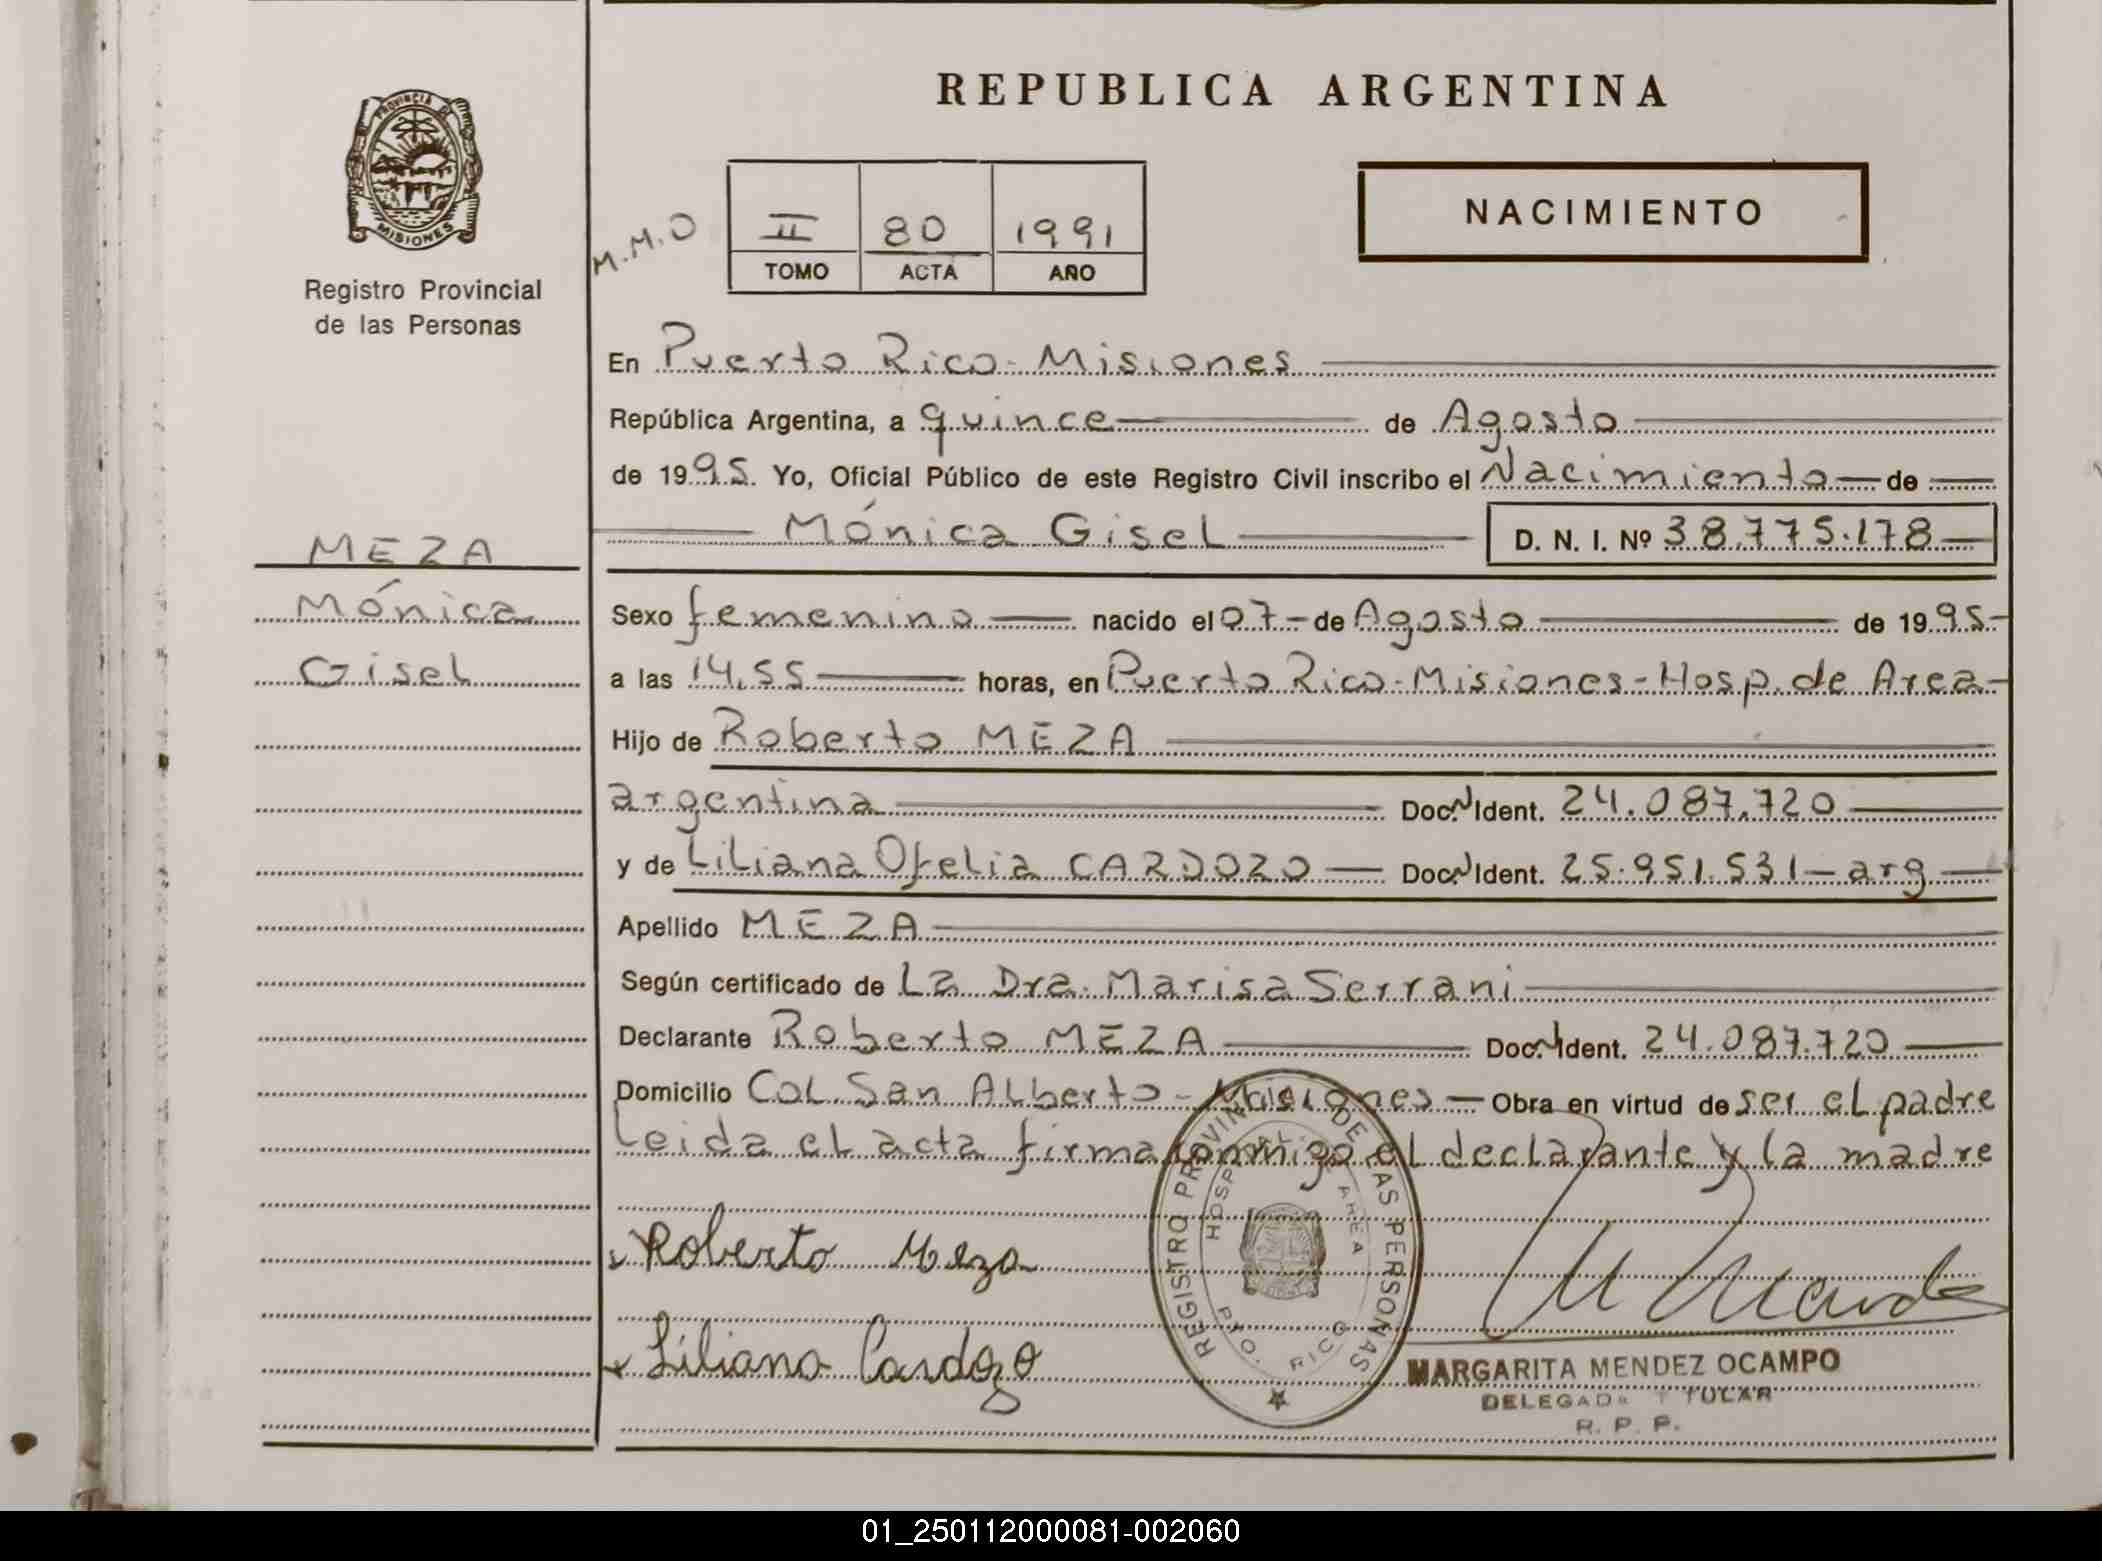 REPUBLICA ARGENTINA
PROVINCIA DE MISIONES
Registro Provincial
de las Personas
M.M.O
II 80 1991
TOMO ACTA AÑO
NACIMIENTO
En Puerto Rico - Misiones
República Argentina, a quince de Agosto
de 1995. Yo, Oficial Público de este Registro Civil inscribo el Nacimiento de
Mónica Gisel D. N. I. Nº 38.775.178
MEZA
Mónica
Gisel
Sexo femenino nacido el 07 de Agosto de 1995
a las 14,55 horas, en Puerto Rico - Misiones - Hosp. de Area
Hijo de Roberto MEZA
argentina Doc. Ident. 24.087.720
y de Liliana Ofelia CARDOZO Doc. Ident. 25.951.531 - arg
Apellido MEZA
Según certificado de La Dra. Marisa Serrani
Declarante Roberto MEZA Doc. Ident. 24.087.720
Domicilio Col. San Alberto - Misiones - Obra en virtud de ser el padre
Leida el acta firma conmigo el declarante y la madre
Roberto Meza
Liliana Cardozo
REGISTRO PROVINCIAL DE LAS PERSONAS
HOSPITAL DE AREA
PTO. RICO
MARGARITA MENDEZ OCAMPO
DELEGADA TITULAR
R. P. P.
01_250112000081-002060